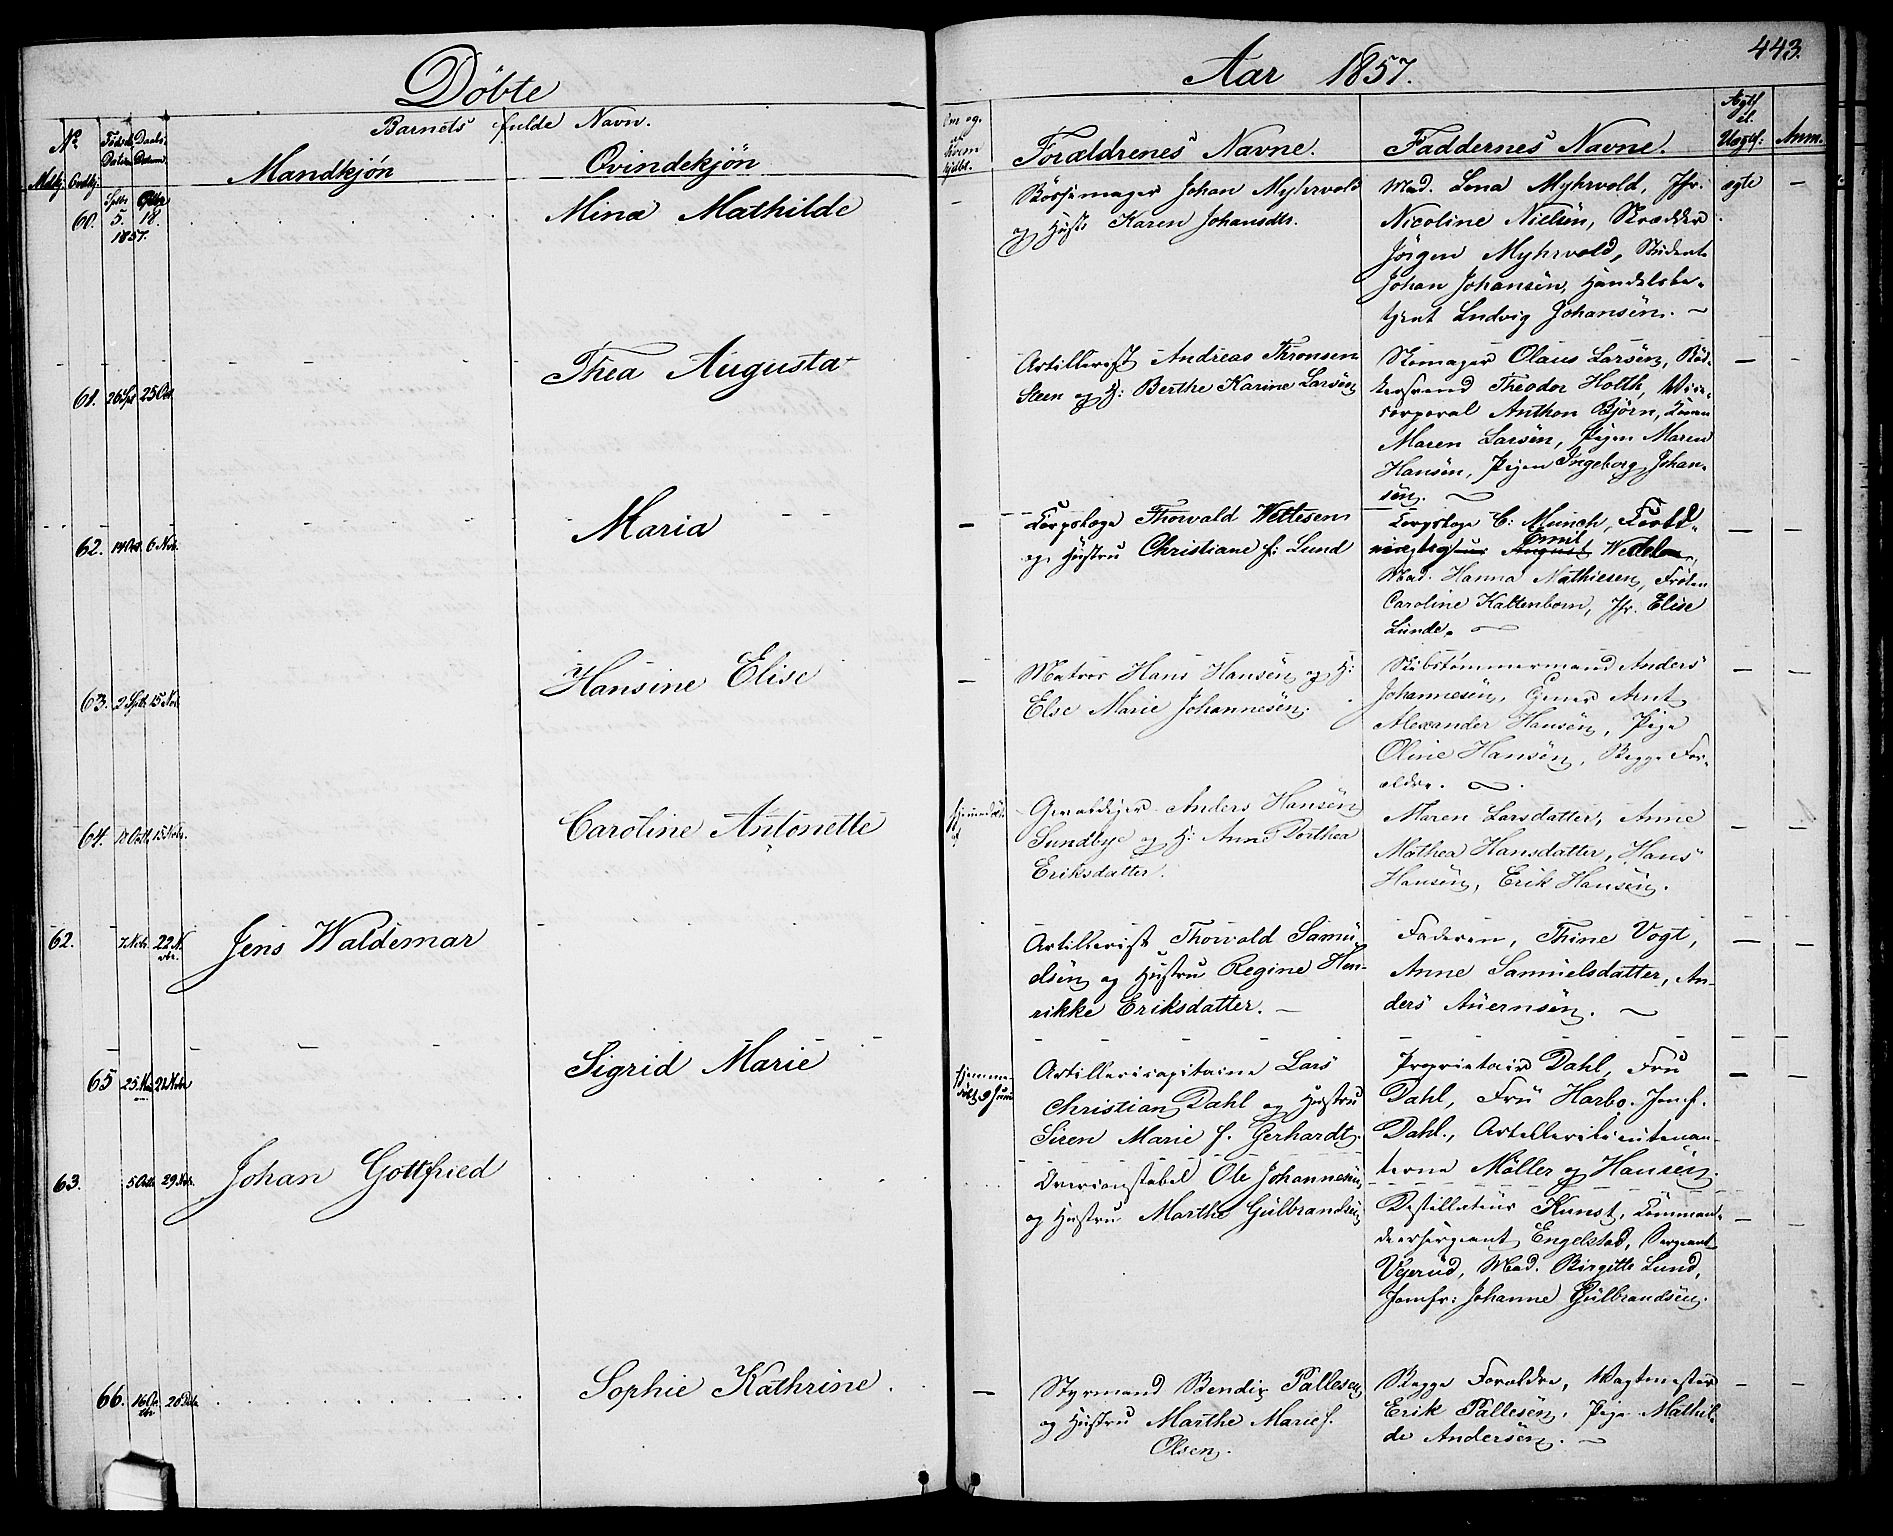 Döbte
Aar 1857.
443.
Barnets fulde Navn.
No
Mandkjøn
Qvindekjön
Forældrenes Navne.
Faddernes Navne.
Anm.
60. 5. 18. 1857.
Mina Mathilde
Bössemager Johan Myhrvold
og Hust. Karen Johansdtr.
Mad. Lena Myhrvold, Jfr.
Nicoline Nielsen, Skrædder
Jörgen Myhrvold, Student
Johan Johansen, Handelsbe-
tjent Ludvig Johansen.
ægte
61. 26 Spt 25 Oct.
Thea Augusta
Artillerist Andreas Thronsen
Steen og H: Berthe Karine Larsen
Skomager Olaus Larsen,
Theodor Holth, Vice-
corporal Anthon Björn,
Maren Larsen, Pigen Maren
Hansen, Pigen Ingeborg Johan-
sen.
62. 14 Oct. 6 Nov.
Maria
Corpslæge Thorvald Wettesen
og Hustru Christiane f: Lund
Corpslæge C: Munch,
Emil
August
Mad. Hanna Mathiesen, Frøken
Caroline Kaltenborn, Jfr. Elise
Lunde.
63. 2 Sptr 15 Nov.
Hansine Elise
Matros Hans Hansen og H:
Else Marie Johannesen.
Skibstømmermand Anders
Johannesen, Arnt
Alexander Hansen, Pige
Oline Hansen, Begge For-
ældre.
64. 17 Octb. 15 Novbr.
Caroline Antonette
Anders Hansen
Sundbye og H: Anne Dorthea
Eriksdatter.
Maren Larsdatter, Anne
Mathea Hansdatter, Hans
Hansen, Erik Hansen.
62. 7 Nov. 22 N. vbr.
Jens Waldemar
Artillerist Thorvald Samu-
elsen og Hustru Regine Hen-
rikke Eriksdatter.
Faderen, Thine Vogt,
Anne Samuelsdatter, An-
ders Auernsen.
65 25. 21 Nobr
Sigrid Marie
Hjemme-
døbt 9 Juni
Artillericapitaine Lars
Christian Dahl og Hustru
Siren Marie f. Gerhardt.
Proprietair Dahl, Fru
Dahl, Fru Harbo. Jomf.
Dahl., Artillerilieutenan-
terne Möller og Hansen.
63. 5 Octb 29 Nbr.
Johan Gottfried
Overconstabel Ole Johannesen
og Hustru Marthe Gulbrandsen
Destillateur Kunst, Comman-
deersergeant Engelstad, Sergeant
Vejerud, Mad. Birgitte Lund,
Jomfr: Johanne Gulbrandsen.
66.
Sophie Kathrine.
Styrmand Bendix Pallesen
og Hustru Marthe Marie f.
Olsen.
Begge Forældre, Vagtmester
Erik Pallesen, Pige Mathil-
de Andersen.